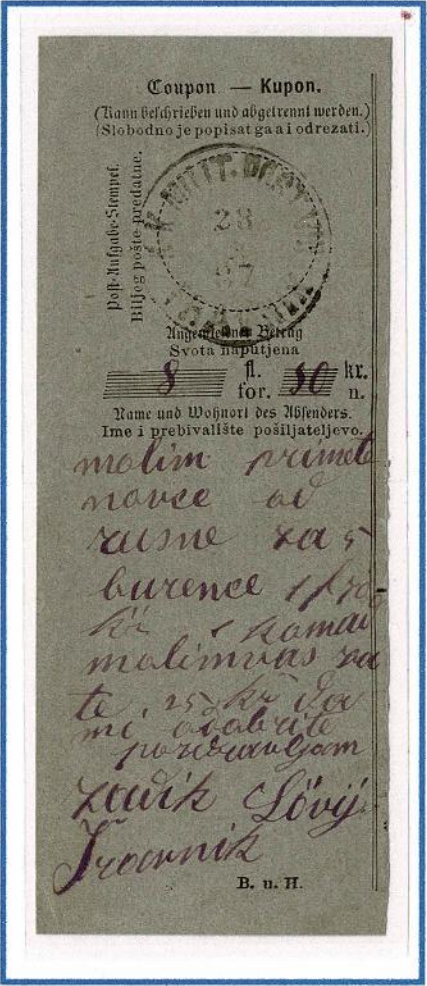 Coupon — Kupon.
(Kann beschrieben und abgetrennt werden.)
(Slobodno je popisat ga a i odrezati.)
Post-Aufgabe-Stempel.
Biljeg pošte predatne.
K. MILIT. POST
28
97
Angewiesener Betrag
Svota naputjena
8 fl. 80 kr.
for. n.
Name und Wohnort des Absenders.
Ime i prebivalište pošiljateljevo.
molim primete
novce od
rusne za 5
burence 1 f 70
kr komad
molim vas za
te 25 kr da
mi odobrite
pozdravljam
Zadik Lövy
Travnik
B. u. H.